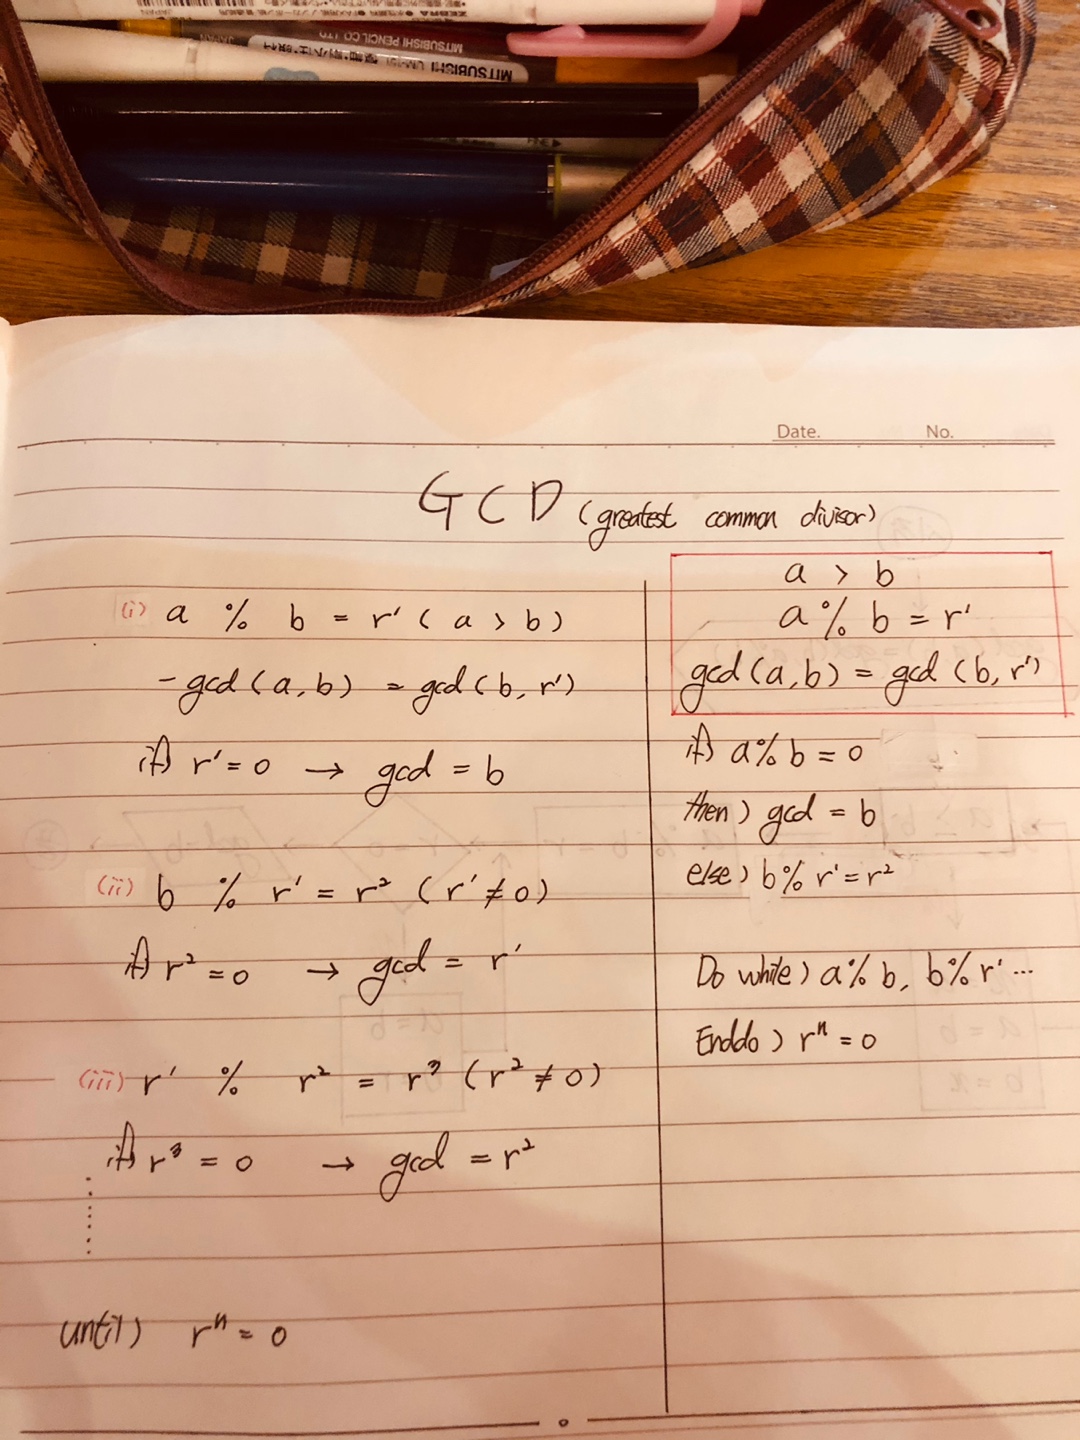 MITSUBISHI PENCIL CO., LTD
JAPAN
MITSUBISHI
Date.
No.
GCD (greatest common divisor)
(i) a % b = r' (a > b)
- gcd (a, b) = gcd (b, r')
if) r' = 0 → gcd = b
(ii) b % r' = r² (r' ≠ 0)
if) r² = 0 → gcd = r'
(iii) r' % r² = r³ (r² ≠ 0)
if) r³ = 0 → gcd = r²
until) rⁿ = 0
a > b
a % b = r'
gcd (a, b) = gcd (b, r')
if) a % b = 0
then) gcd = b
else) b % r' = r²
Do while) a % b, b % r' ...
Enddo) rⁿ = 0